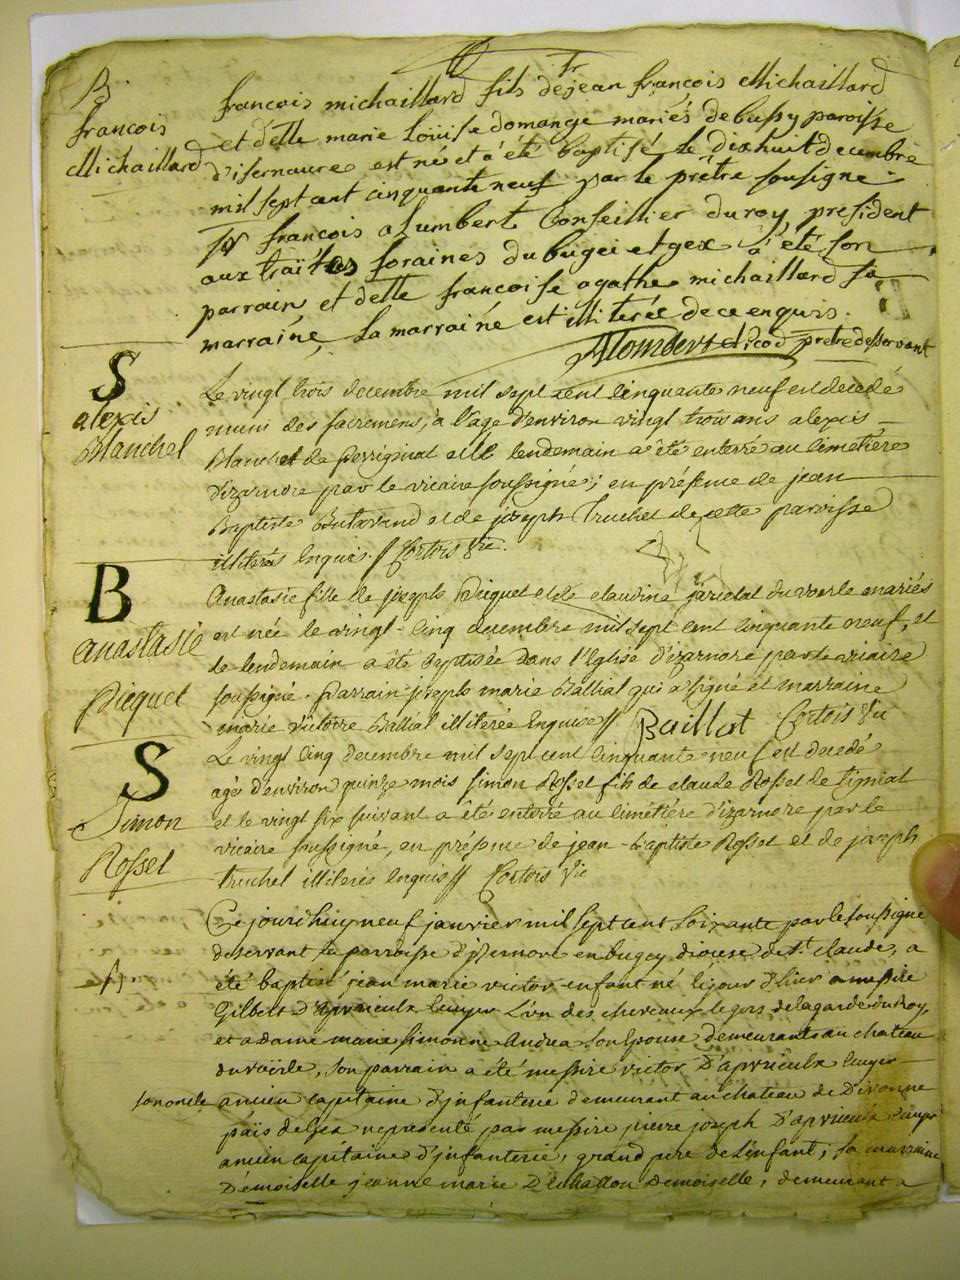 B
françois
Michaillard
françois michaillard fils de jean françois Michaillard
et dlle marie Loüise domange mariés de bussy paroisse
d'isernaure est né et a été baptisé le dixhuit decembre
mil sept cent cinquante neuf par le prêtre sousigné
sr françois alumbert Conseillier du roy, president
aux traites foraines du bugei et gex a été son
parrain et delle francoise agathe michaillard sa
marraine, La marraine est illiterée de ce enquis.
prêtre desservant
S
alexis
Blanchet
Le vingt trois decembre mil sept cent cinquante neuf est decedé
muni des sacremens, a l'age d'environ vingt trois ans alexis
Blanchet de perrignat et le lendemain a été enterré au cimetière
d'izarnore par le vicaire soussigné; en présence de jean
Baptiste et de joseph Truchet de cette paroisse
illiterés enquis. // Cortois Vre.
B
anastasie
Picquet
Anastasie fille de joseph Picquet et de claudine jarietat du voerle mariés
est née le vingt-cinq decembre mil sept cent cinquante neuf, et
le lendemain a été baptisée dans l'Eglise d'izarnore par le vicaire
soussigné. Parrain joseph marie Balliat qui a signé et marraine
marie victoire Balliat illiterée enquise // Baillat Cortois Vic
S
Simon
Rosset
Le vingt cinq decembre mil sept cent cinquante neuf est decedé
agé d'environ quinze mois simon Rosset fils de claude Rosset de tignat
et le vingt six suivant a été enterré au cimétière d'izarnore par le
vicaire soussigné, en présence de jean-baptiste Rosset et de joseph
truchet illiterés enquis // Cortois Vic
Ce jourdhuy neuf janvier mil sept cent soixante par le soussigné
desservant la parroisse d'izernore en bugey diocese de St. claude, a
été baptisé jean marie victor enfant né le jour d'hier a messire
Gilbert d'apvrieulx Ecuyer L'un des chevaux legers de la garde du Roy,
et a dame marie simonne Andréa son Epouse demeurants au chateau
du voërle, son parrain a été messire victor D'apvrieulx Ecuyer
son oncle ancien capitaine d'jnfanterie demeurant au chateau de Divonne
païs de Gex representé par messire pierre joseph D'apvrieulx Ecuyer
ancien capitaine d'jnfanterie, grand pere de l'enfant; sa marraine
Demoiselle jeanne marie D'echallon Demoiselle, demeurant a